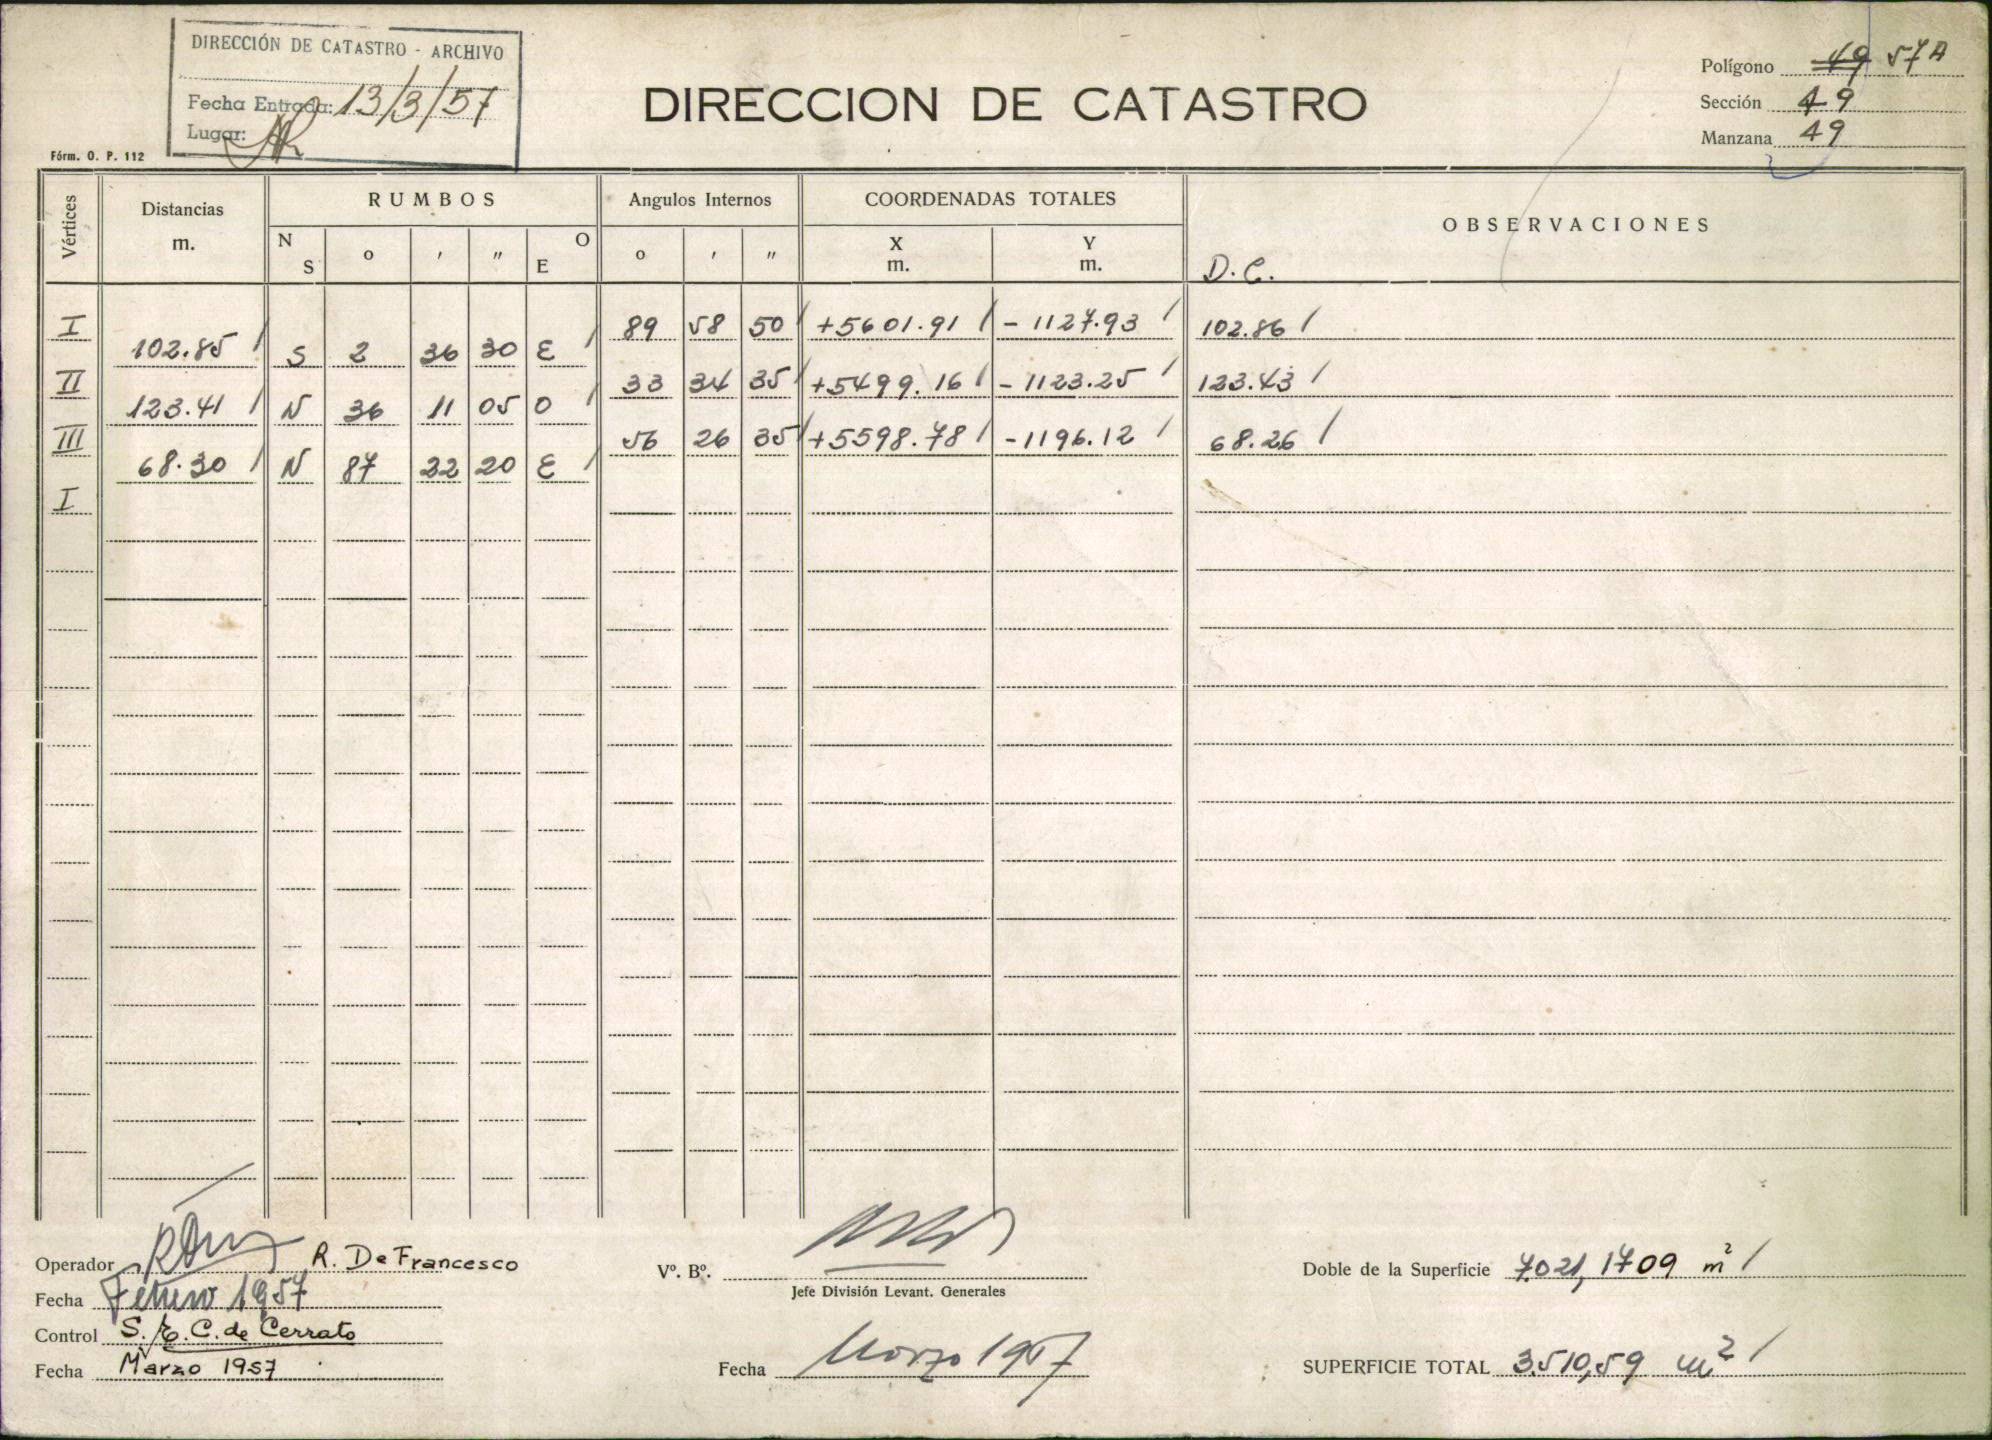 DIRECCIÓN DE CATASTRO - ARCHIVO
Fecha Entrada: 13/3/57
Lugar:
Fórm. O. P. 112
DIRECCION DE CATASTRO
Polígono 49 57A
Sección 49
Manzana 49
Vértices
Distancias m.
RUMBOS
N S o ′ ″ O E
Angulos Internos
o ′ ″
COORDENADAS TOTALES
X m. Y m.
OBSERVACIONES
D. C.
I 89 58 50 +5601.91 - 1127.93 102.86
102.85 S 2 36 30 E
II 33 34 35 +5499.16 - 1123.25 123.43
123.41 N 36 11 05 O
III 56 26 35 +5598.78 -1196.12 68.26
68.30 N 87 22 20 E
I
Operador R. De Francesco
Fecha Febrero 1957
Control S. E. C. de Cerrato
Fecha Marzo 1957
Vº. Bº.
Jefe División Levant. Generales
Fecha Marzo 1957
Doble de la Superficie 7.021,1709 m²
SUPERFICIE TOTAL 3.510,59 m²